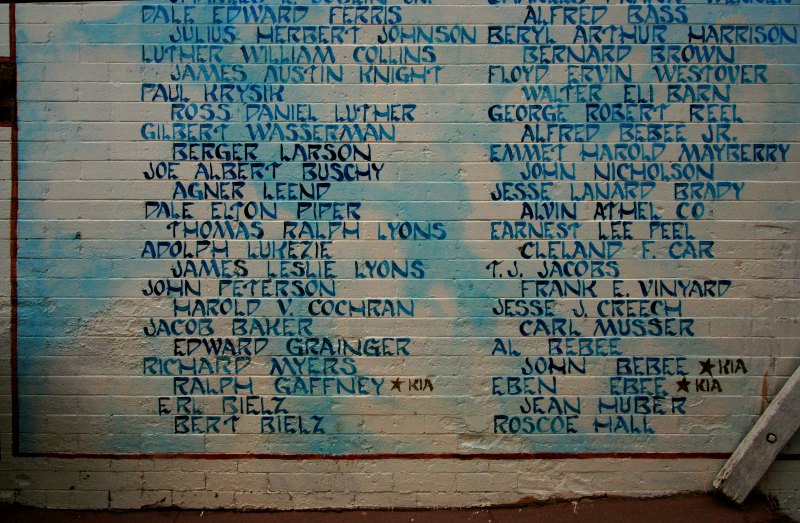 DALE EDWARD FERRIS
JULIUS HERBERT JOHNSON
LUTHER WILLIAM COLLINS
JAMES AUSTIN KNIGHT
PAUL KRYSIK
ROSS DANIEL LUTHER
GILBERT WASSERMAN
BERGER LARSON
JOE ALBERT BUSCHY
AGNER LEEND
DALE ELTON PIPER
THOMAS RALPH LYONS
ADOLPH LUKEZIE
JAMES LESLIE LYONS
JOHN PETERSON
HAROLD V. COCHRAN
JACOB BAKER
EDWARD GRAINGER
RICHARD MYERS
RALPH GAFFNEY ★KIA
ERL BIELZ
BERT BIELZ
ALFRED BASS
BERYL ARTHUR HARRISON
BERNARD BROWN
FLOYD ERVIN WESTOVER
WALTER ELI BARN
GEORGE ROBERT REEL
ALFRED BEBEE JR.
EMMET HAROLD MAYBERRY
JOHN NICHOLSON
JESSE LANARD BRADY
ALVIN ATHEL CO
EARNEST LEE PEEL
CLELAND F. CAR
T.J. JACOBS
FRANK E. VINYARD
JESSE J. CREECH
CARL MUSSER
AL BEBEE
JOHN BEBEE ★KIA
EBEN EBEE ★KIA
JEAN HUBER
ROSCOE HALL